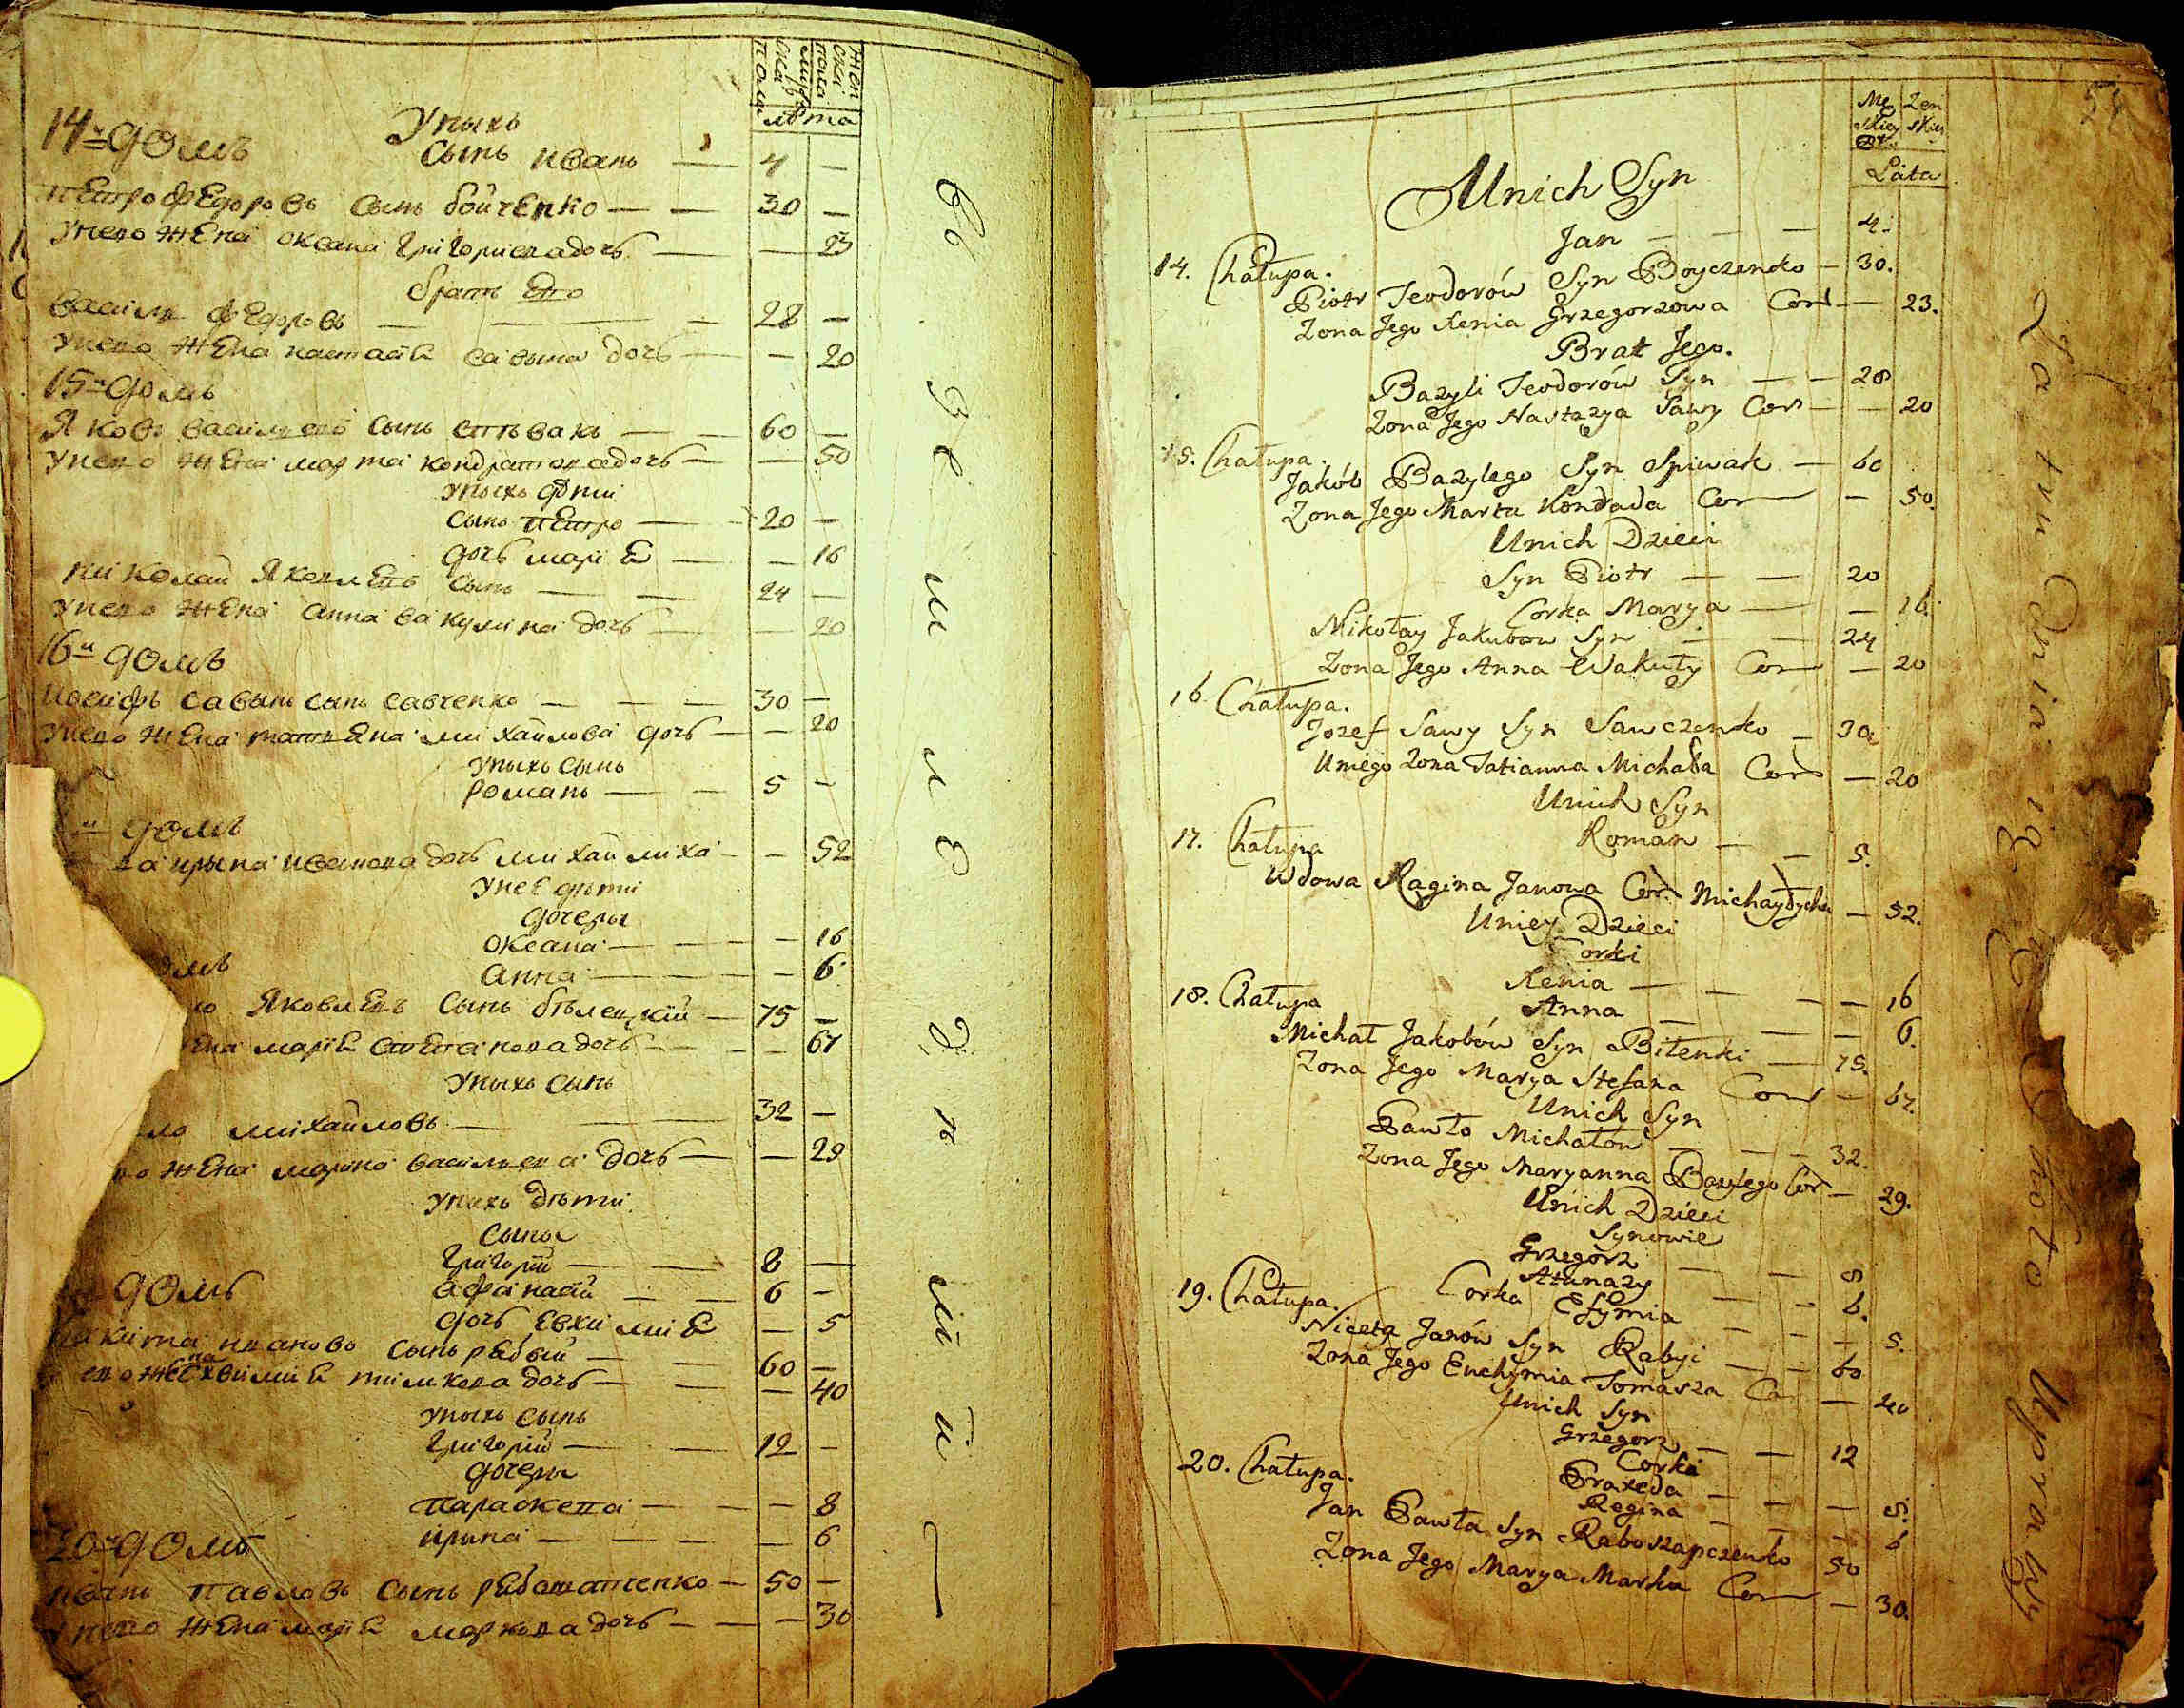 мужеска пола
женска пола
лѣта
Унихъ
сынъ иванъ — 4 —
14й домъ
петро федоровъ сынъ бойченко — — 30 —
унего жена оксана григориева дочъ — — 23
братъ его
василь федоровъ — — — 28 —
унего жена настасія савына дочъ — — 20
15й домъ
Яковъ василиевъ сынъ спѣвакъ — — 60 —
унего жена марта кондратова дочъ — — 50
унихъ дѣти
сынъ петро — — 20 —
дочъ марія — — 16
николай Яковлевъ сынъ — — 24 —
унего жена анна вакулина дочъ — — 20
16й домъ
иосифъ савынъ сынъ савченко — — — 30 —
унего жена татіяна михайлова дочъ — — 20
унихъ сынъ
романъ — — 5 —
й домъ
ва ирына иванова дочъ михайлиха — — 52
унее дѣти
дочеры
оксана — — — — 16
анна — — — — 6
омъ
ло Яковлевъ сынъ бѣлецкій — 75 —
ена марія степанова дочъ — — — 67
унихъ сынъ
ло михайловъ — — 32 —
го жена марина василиева дочъ — — 29
унихъ дѣти
сыны
григорій — — 8 —
афанасій — — 6 —
дочъ евхимія — 5
домъ
никита ивановъ сынъ рябый — — 60 —
его жена евхимія тимкова дочъ — — — 40
унихъ сынъ
григорій — — 12 —
дочеры
параскева — — — 8
ирына — — — — 6
20й домъ
иванъ павловъ сынъ рябошапченко — 50 —
унего жена марія маркова дочъ — — — 30
во
зе
м
л
е
д
ѣ
л
й
54
Męskiey Płci
Żenskiey
Lata
Unich Syn
Jan — — — 4.
14. Chałupa.
Piotr Teodorów Syn Boyczenko — 30.
Zona Jego Xenia Grzegorzowa Cor — 23.
Brat Jego.
Bazyli Teodorów Syn — — 28
Zona Jego Nastazya Sawy Cor — — 20
15. Chałupa.
Jakób Bazylego Syn Spiwak — 60
Zona Jego Marta Kondada Cor — 50.
Unich Dzieci
Syn Piotr — — 20
Corka Marya — — 16.
Mikołay Jakubow Syn — — 24
Zona Jego Anna Wakuły Cor — 20
16 Chałupa.
Jozef Sawy Syn Sawczenko — 30
Uniego Zona Tatianna Michała Cor — 20
Unich Syn
Roman — — 5.
17. Chałupa
Wdowa Ragina Janowa Cor. Michayłycha — 52.
Uniey Dzieci
Corki
Xenia — — — — 16
Anna — — — 6.
18. Chałupa
Michał Jakobów Syn Biłenki — 75.
Zona Jego Marya Stefana Cor — 67.
Unich Syn
Pawło Michałów — — — 32.
Zona Jego Maryanna Bazylego Cor — 29.
Unich Dzieci
Synowie
Grzegorz — — 8
Atanazy — — 6.
Corka Efymia — — — 5.
19. Chałupa.
Niceta Janów Syn Rabyi — — 60
Zona Jego Euchymia Tomasza Cor — 40
Unich Syn
Grzegorz — — 12
Corki
Praxeda — — — 8.
Regina — — — 6
20. Chałupa.
Jan Pawła Syn Raboszapczenko 50
Zona Jego Marya Marka Cor — 30.
Uprawy